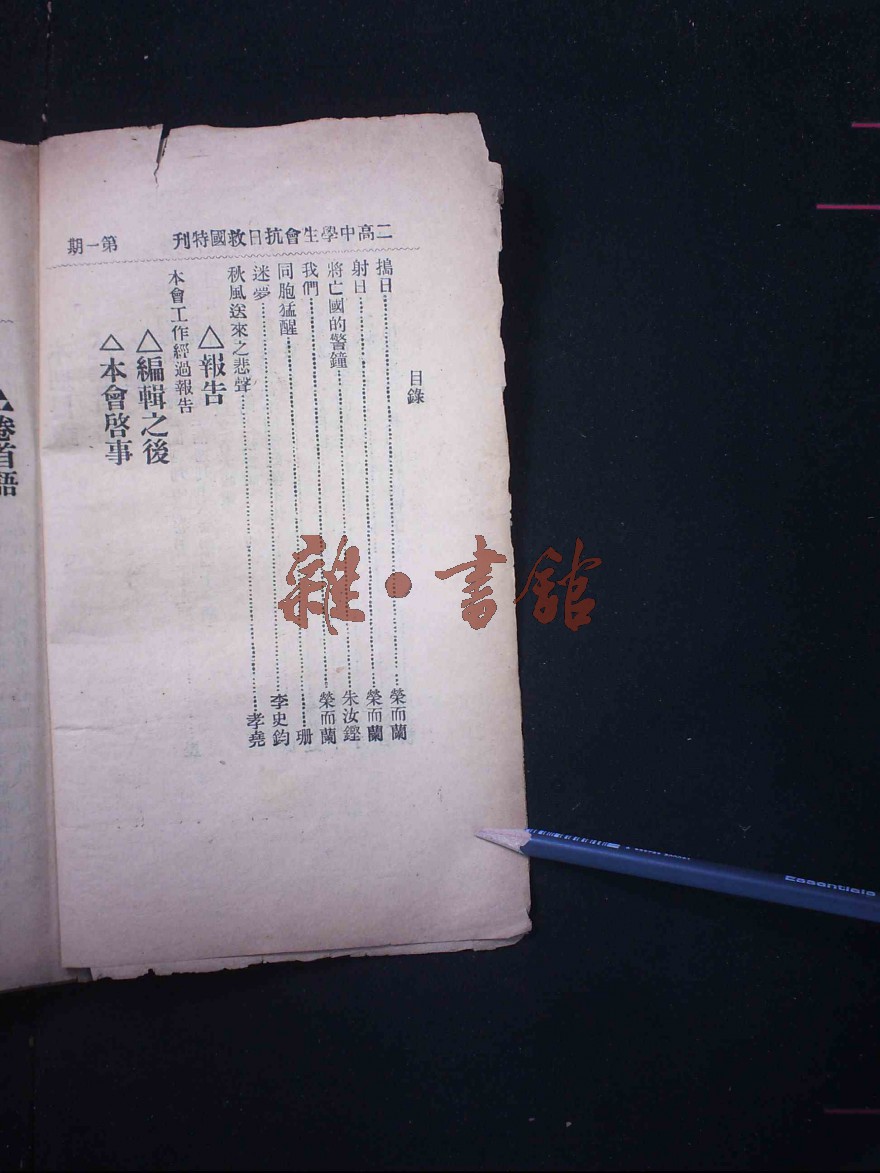 二高中學生會抗日救國特刊 第一期
目錄
搗日……榮而蘭
射日……榮而蘭
將亡國的警鐘……朱汝鏗
我們……榮而蘭
同胞猛醒……珊
迷夢……李史鈞
秋風送來之悲聲……孝堯
△報告
本會工作經過報告
△編輯之後
△本會啓事
△卷首語
雜·書館
Essentials